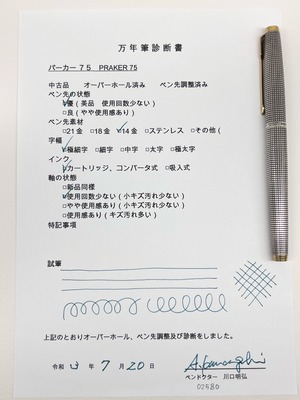 万年筆診断書
パーカー75 PRAKER 75
中古品 オーバーホール済み ペン先調整済み
ペン先の状態
☑優(美品 使用回数少ない)
□良(やや使用感あり)
ペン先素材
□21金 □18金 ☑14金 □ステンレス □その他(
字幅
☑極細字 □細字 □中字 □太字 □極太字
インク
☑カートリッジ、コンバータ式 □吸入式
軸の状態
□新品同様
☑使用回数少ない(小キズ汚れ少ない)
□やや使用感あり(小キズ汚れ少ない)
□使用感あり(キズ汚れ多い)
特記事項
試筆
上記のとおりオーバーホール、ペン先調整及び診断をしました。
令和 3 年 7 月 20 日
ペンドクター 川口明弘
02580